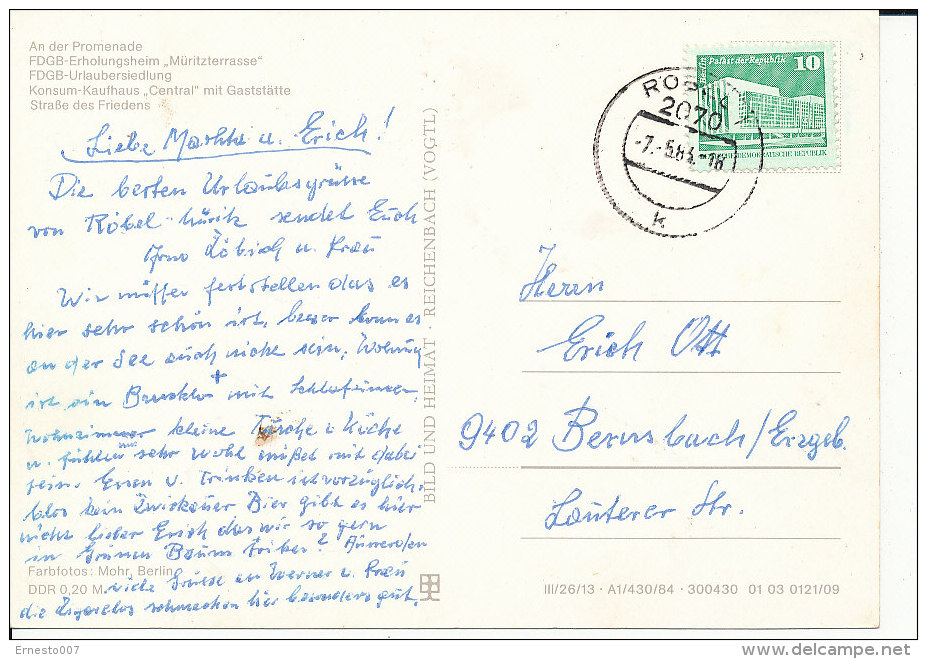 An der Promenade
FDGB-Erholungsheim „Müritzterrasse"
FDGB-Urlaubersiedlung
Konsum-Kaufhaus „Central" mit Gaststätte
Straße des Friedens
Liebe Martha u. Erich!
Die besten Urlaubsgrüsse
von Röbel-Müritz sendet Euch
u. Frau
Wir müssen feststellen das es
hier sehr schön ist, besser kann es
an der See auch nicht sein. Wohnung
ist ein mit Schlafzimmer,
Wohnzimmer kleine Küche
u. fühlen uns sehr wohl müßet mit dabei
sein. Essen u. Trinken ist vorzüglich,
blos kein Zwickauer Bier gibt es hier
nicht lieber Erich das wir so gern
in Grünen Baum Ausserdem
viele Grüsse an Werner u. Frau
die schmecken hier besonders gut.
Farbfotos: Mohr, Berlin
DDR 0,20 M
BILD UND HEIMAT · REICHENBACH (VOGTL)
Palast der Republik 10
DEMOKRATISCHE REPUBLIK
2070
k
Herrn
Erich Ott
9402 Bernsbach/Erzgeb.
Lauterer Str.
III/26/13 · A1/430/84 · 300430 01 03 0121/09
Ernesto007
delcampe.net